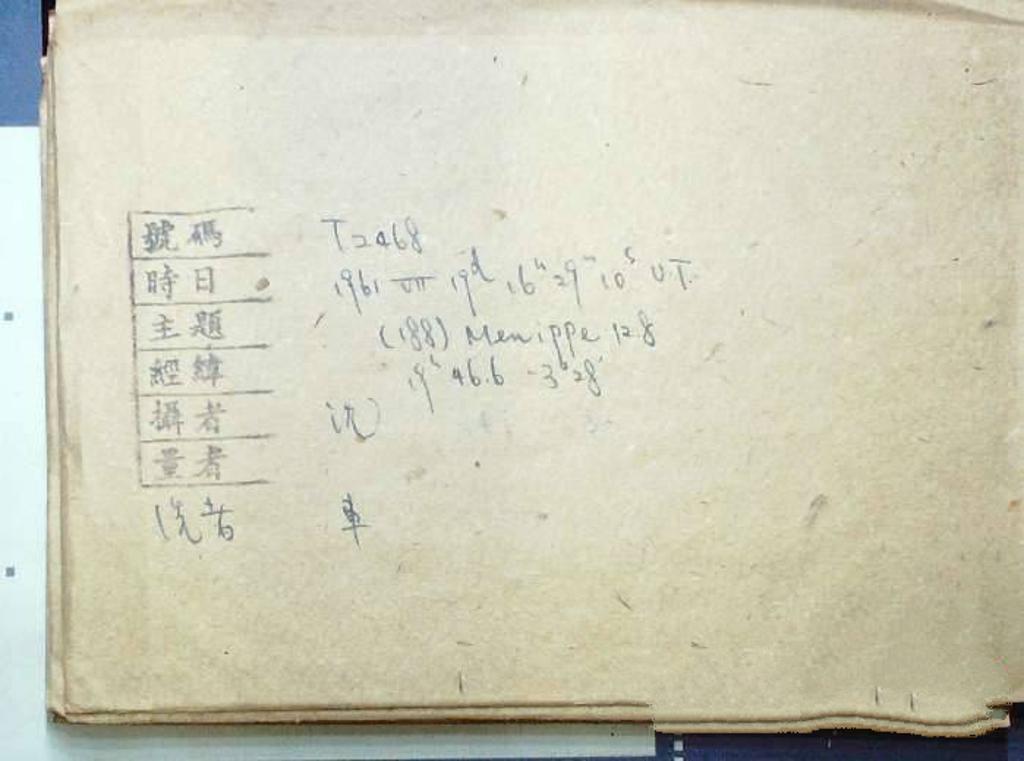 號碼 T2468
時日 1961 VII 19d 16h 29m 10s U.T.
主題 (188) Menippe 12.8
經緯 19h 46.6 -3°28'
攝者 沈
量者
洗者 車